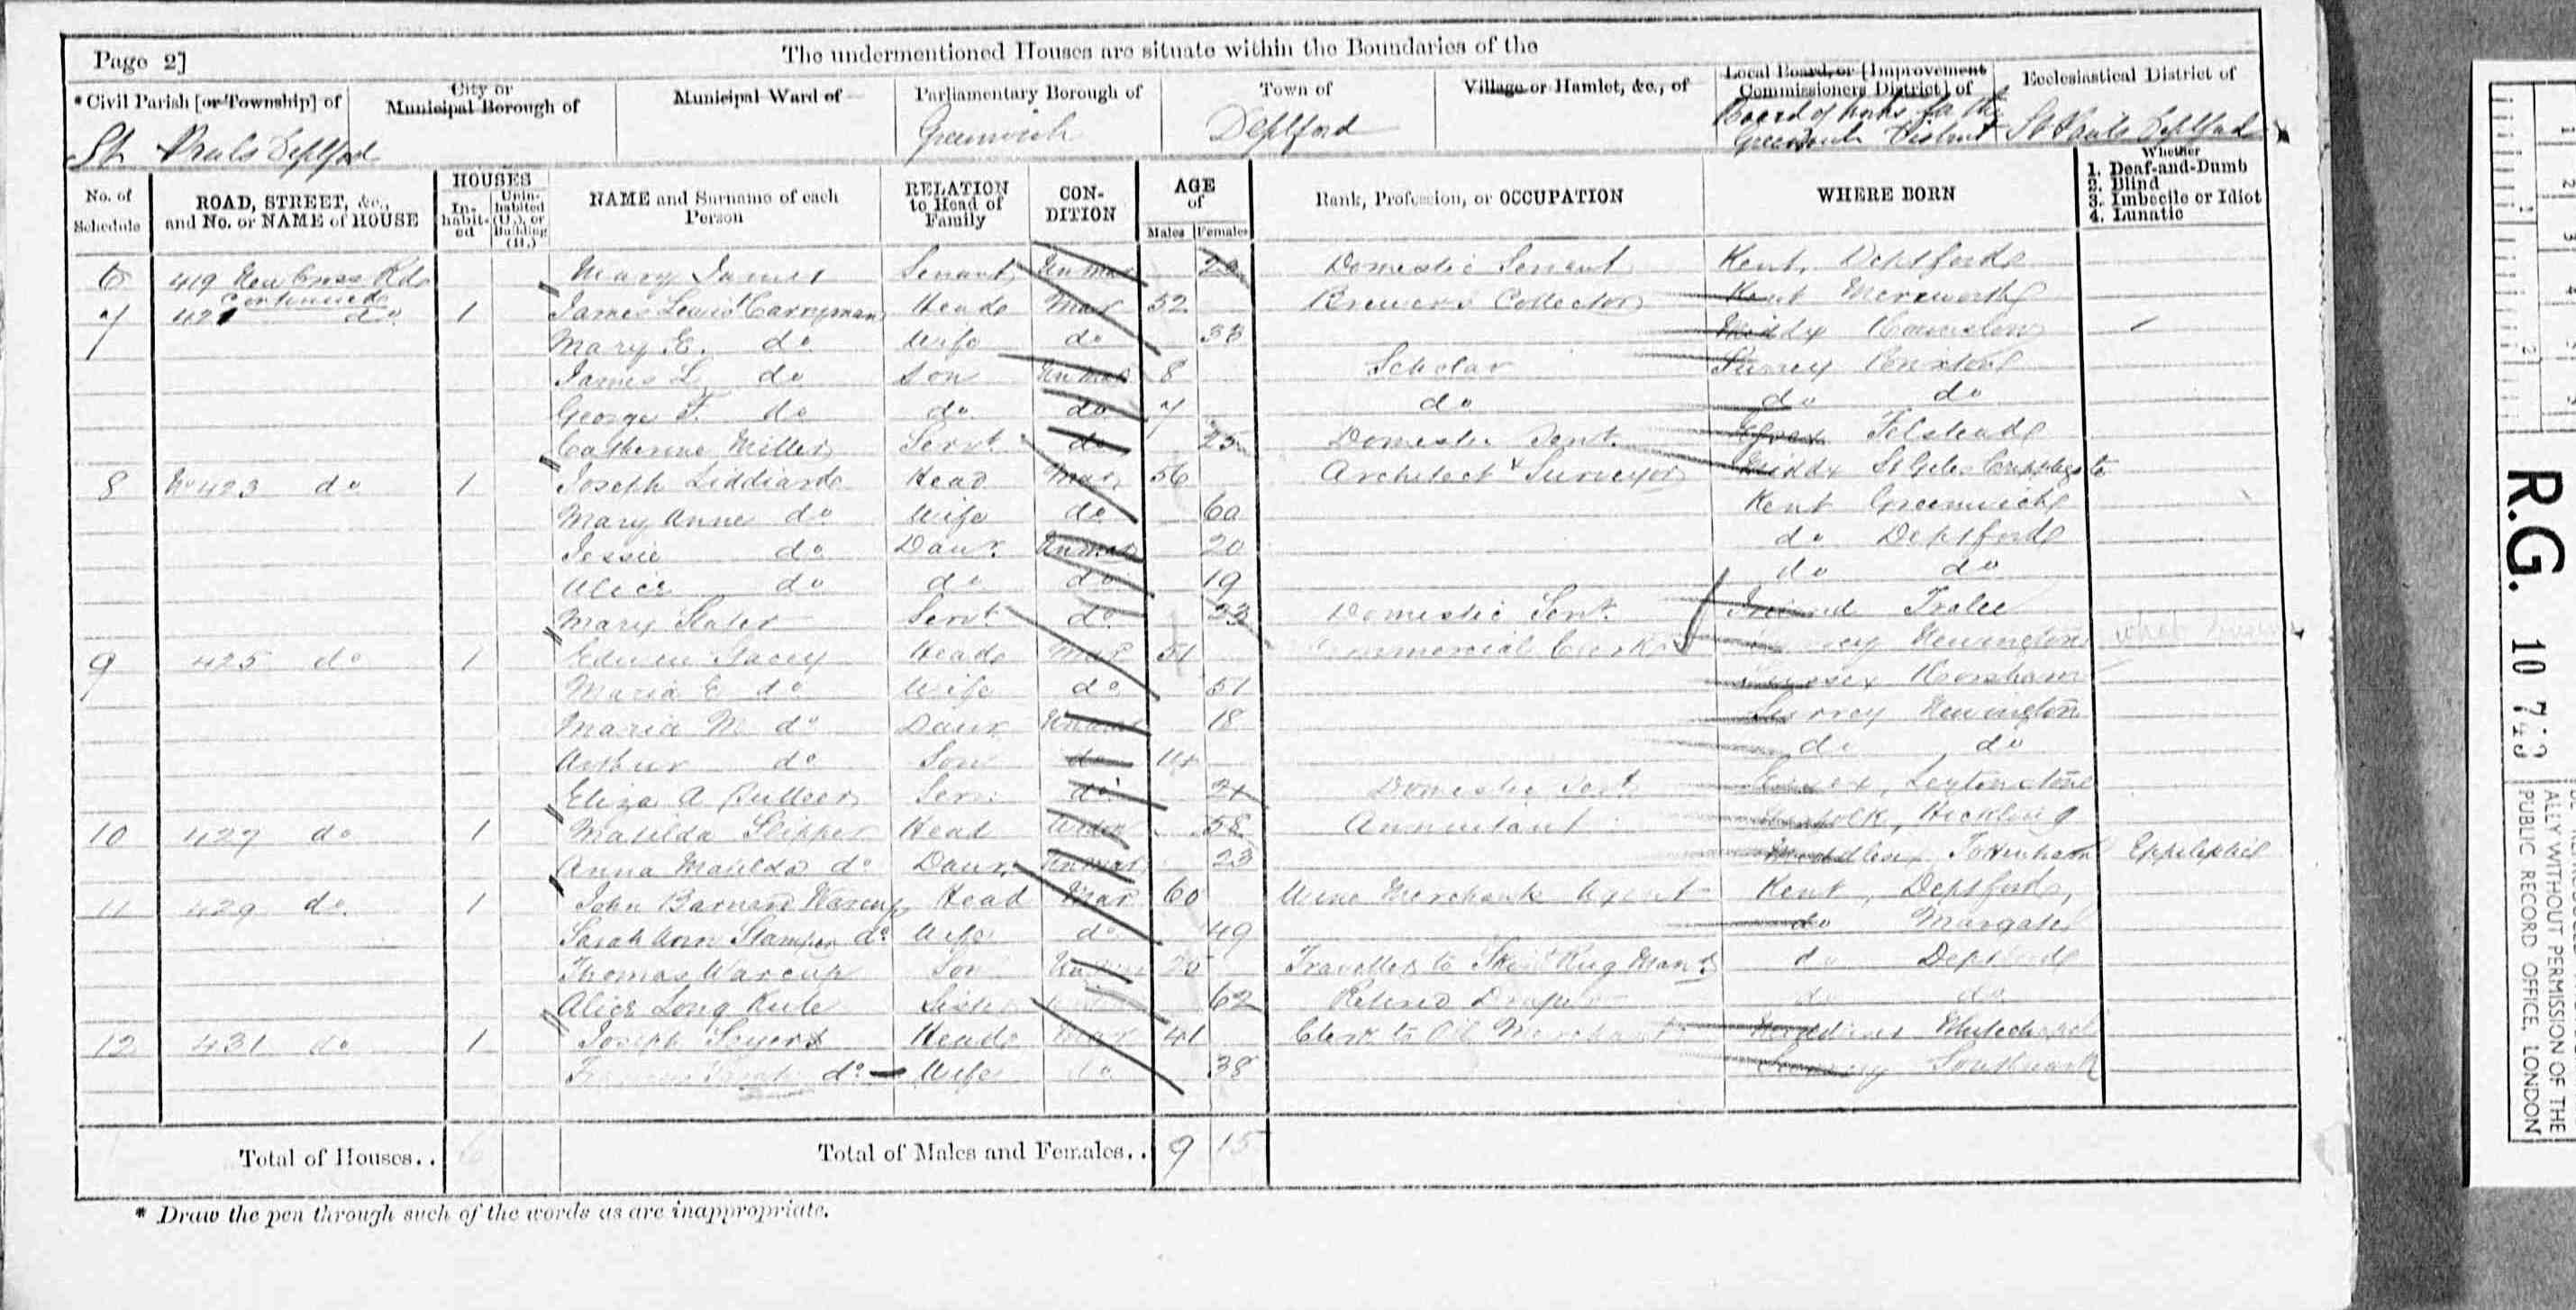 Page 2]
The undermentioned Houses are situate within the Boundaries of the
*Civil Parish [or Township] of
City or Municipal Borough of
Municipal Ward of
Parliamentary Borough of
Town of
Village or Hamlet, &c., of
Local Board, or [Improvement Commissioners District] of
Ecclesiastical District of
St Pauls Deptford
Greenwich
Deptford
Board of Works for the Greenwich District
St Pauls Deptford
No. of Schedule
ROAD, STREET, &c., and No. or NAME of HOUSE
HOUSES
In-habit-ed
Unin-habited (U.), or Building (B.)
NAME and Surname of each Person
RELATION to Head of Family
CON-DITION
AGE of
Males Females
Rank, Profession, or OCCUPATION
WHERE BORN
Whether
1. Deaf-and-Dumb
2. Blind
3. Imbecile or Idiot
4. Lunatic
6 419 New Cross Rd continued Mary James Servant Unmar 20 Domestic Servant Kent, Deptford
7 421 do 1 James Lewis Head Mar 52 Brewers Collector Kent Mereworth
Mary E. do Wife do 33 Middx Hounslow
James L do Son Unmar 8 Scholar Surrey
George F. do do do 7 do do do
Catherine Miller Servt do 25 Domestic Servt. Essex Felstead
8 No 423 do 1 Joseph Liddiard Head Mar 56 Architect & Surveyor Middx St Giles Cripplegate
Mary Anne do Wife do 60 Kent Greenwich
Jessie do Daur. Unmar 20 do Deptford
Alice do do do 19 do do
Mary Slater Servt do 23 Domestic Servt. Ireland Tralee
9 425 do 1 Edwin Stacey Head Mar 51 Commercial Clerk Surrey Newington
Maria E do Wife do 51 Sussex Horsham
Maria M do Daur Unmar 18 Surrey Newington
Arthur do Son do 14 do do
Eliza A Serv. do 21 Domestic Servt Essex, Leytonstone
10 427 do 1 Matilda Slipper Head Widow 58 Annuitant Norfolk, Hickling
Anna Matilda do Daur. Unmar 23 Middlesex Tottenham Eppileptic
11 429 do. 1 John Barnard Warcup Head Mar 60 Wine Merchants Agent Kent, Deptford,
Sarah Ann Stamper do Wife do 49 do Margate
Thomas Warcup Son Unmar 20 Traveller to Rug Manr do Deptford
Alice Long Sister 62 Retired Draper do do
12 431 do 1 Joseph Head Mar 41 Clerk to Oil Merchant Middlesex Whitechapel
do Wife do 38 Surrey Southwark
Total of Houses.. 6
Total of Males and Females.. 9 15
* Draw the pen through such of the words as are inappropriate.
R.G. 10 743
ALLY WITHOUT PERMISSION OF THE
PUBLIC RECORD OFFICE, LONDON